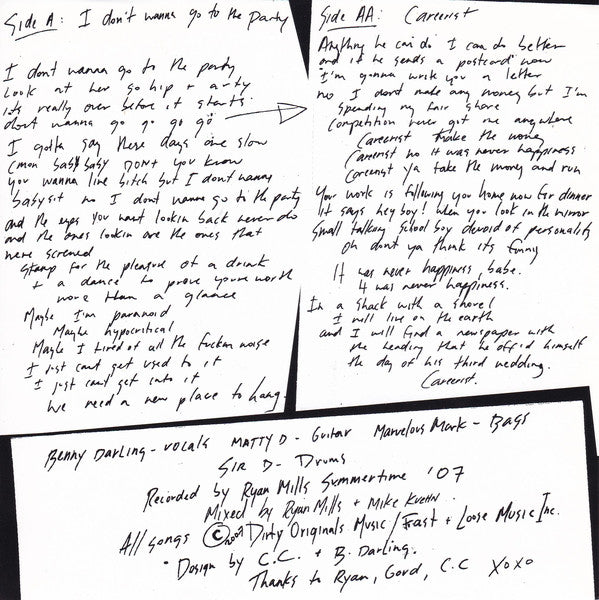 Side A: I don't wanna go to the Party
I dont wanna go to the party
Look at her so hip + arty
its really over before it starts
dont wanna go go go go
I gotta say these days are slow
Cmon baby baby DONT you know
you wanna line bitch but I dont wanny
babysit no I dont wanna go to the party
and the eyes you want lookin back never do
and the ones lookin are the ones that
were screwed
Stamp for the pleasure of a drink
+ a dance to prove youre worth
more than a glance
Maybe I'm paranoid
Maybe hypocritical
Maybe I tired of all the fuckin noise
I just cant get used to it
I just cant get into it
We need a new place to hang.
Side AA: Careerist
Anything he can do I can do better
and if he sends a postcard now
I'm gonna write you a letter
no I dont make any money but I'm
Spending my fair share
Competition never got me anywhere
Careerist make the money
Careerist no it was never happiness
Careerist ya take the money and run
Your work is following you home now for dinner
It says hey boy! when you look in the mirror
Small talking school boy devoid of personality
Oh dont ya think its funny
It was never happiness, babe.
It was never happiness.
In a shack with a shovel
I will live on the earth
and I will find a newspaper with
the heading that he off'd himself
the day of his third wedding.
Careerist.
Benny Darling - vocals Matty D - Guitar Marvelous Mark - Bass
Sir D - Drums
Recorded by Ryan Mills Summertime '07
Mixed by Ryan Mills + Mike Kuehn.
All songs © 2007 Dirty Originals Music / Fast + Loose Music Inc.
Design by C.C. + B. Darling.
Thanks to Ryan, Gord, C.C XoXo